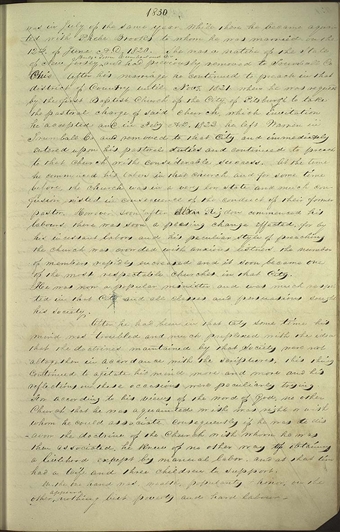 1830
was in July of the same year. While there he became acquain
ted with Phebe Brooks to whom he was married on the
12th of June A.D. 1820. She was a native of the State
of New Jersey, and had previously removed to
Ohio. After his marriage he continued to preach in that
district of Country until Nov. 1821 when he was requested
by the first Baptist Church of the City of Pittsburgh to take
the pastoral charge of said Church, which invitation
he accepted and in A.D. 1822 he left Warren in
Trumbull Co. and removed to that City and immediately
entered upon his pastoral duties and continued to preach
to that Church with considerable success. At the time
he commenced his labors in that church and for some time
before the church was in a very low state and much con-
fusion existed in consequence of the conduct of their former
pastor. However soon after Elder Rigdon commenced his
labours there was a pleasing change effected, for by
his incessant labors and his peculiar style of preaching
the church was crowded with anxious listeners the number
of members rapidly increased and it soon became one
of the most respectable Churches in that City.
He was now a popular minister and was much respec
ted in that City and all classes and persuasions sought
his society.
After he had been in that City some time his
mind was troubled and much perplexed with the idea
that the doctrines maintained by that Society were not
altogether in accordance with the scriptures. This thing
continued to agitate his mind more and more and his
reflections on these occasions were peculiarly trying
for according to his views of the word of God, no other
Church that he was acquainted with was right or with
whom he could associate, consequently if he was to dis
avow the doctrine of the Church with whom he was
then associated, he knew of no other way of obtaining
a livelihood except by manual labor, and at that time
had a wife and three children to support.
On the one hand was wealth popularity honor, on the
other, appeared nothing but poverty and hard labour.